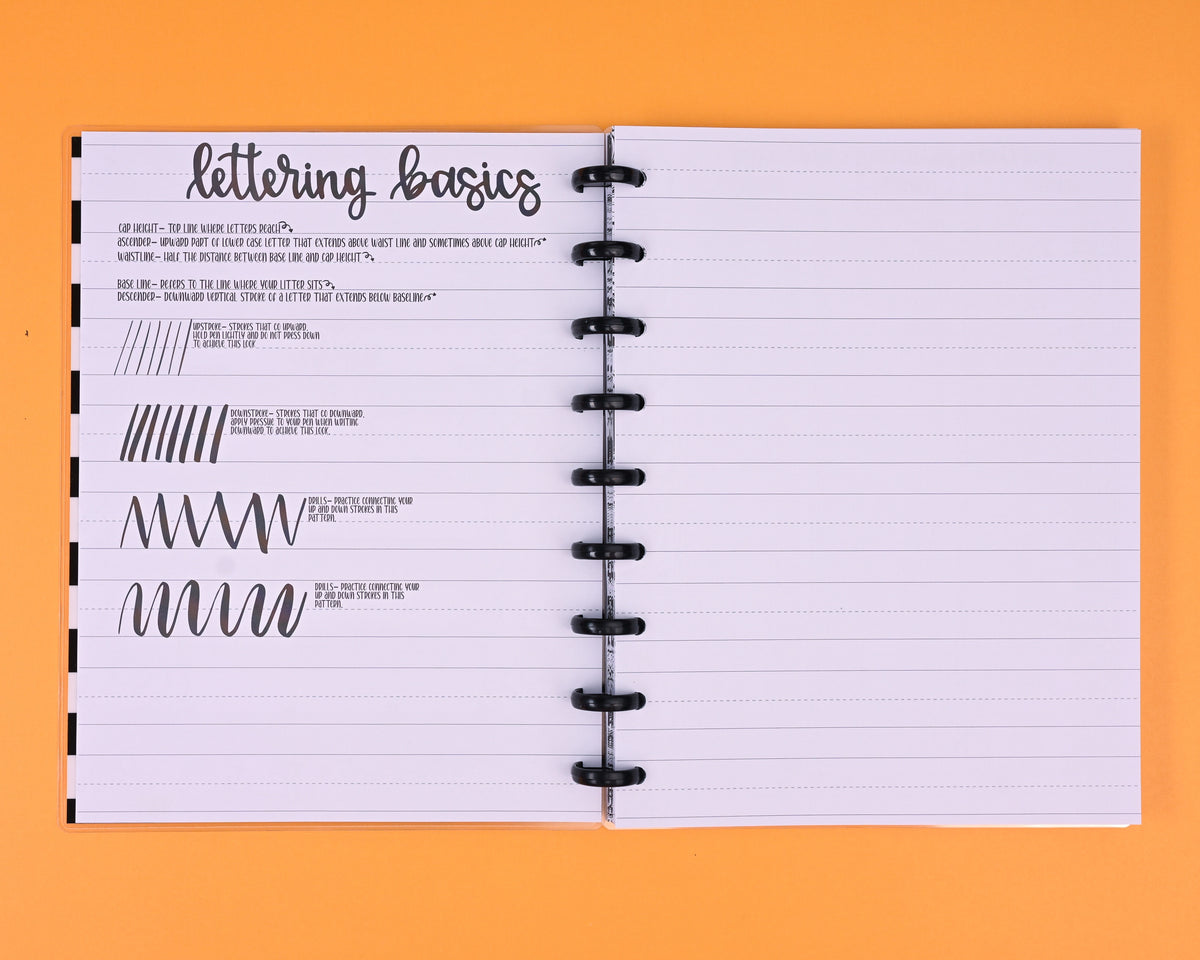 lettering basics
CAP HEIGHT- TOP LINE WHERE LETTERS REACH
ASCENDER- UPWARD PART OF LOWER CASE LETTER THAT EXTENDS ABOVE WAIST LINE AND SOMETIMES ABOVE CAP HEIGHT
WAISTLINE- HALF THE DISTANCE BETWEEN BASE LINE AND CAP HEIGHT
BASE LINE- REFERS TO THE LINE WHERE YOUR LITTER SITS
DESCENDER- DOWNWARD VERTICAL STROKE OF A LETTER THAT EXTENDS BELOW BASELINE
UPSTROKE- STROKES THAT GO UPWARD.
HOLD PEN LIGHTLY AND DO NOT PRESS DOWN
TO ACHIEVE THIS LOOK
DOWNSTROKE- STROKES THAT GO DOWNWARD.
APPLY PRESSUE TO YOUR PEN WHEN WRITING
DOWNWARD TO ACHIEVE THIS LOOK.
DRILLS- PRACTICE CONNECTING YOUR
UP AND DOWN STROKES IN THIS
PATTERN.
DRILLS- PRACTICE CONNECTING YOUR
UP AND DOWN STROKES IN THIS
PATTERN.